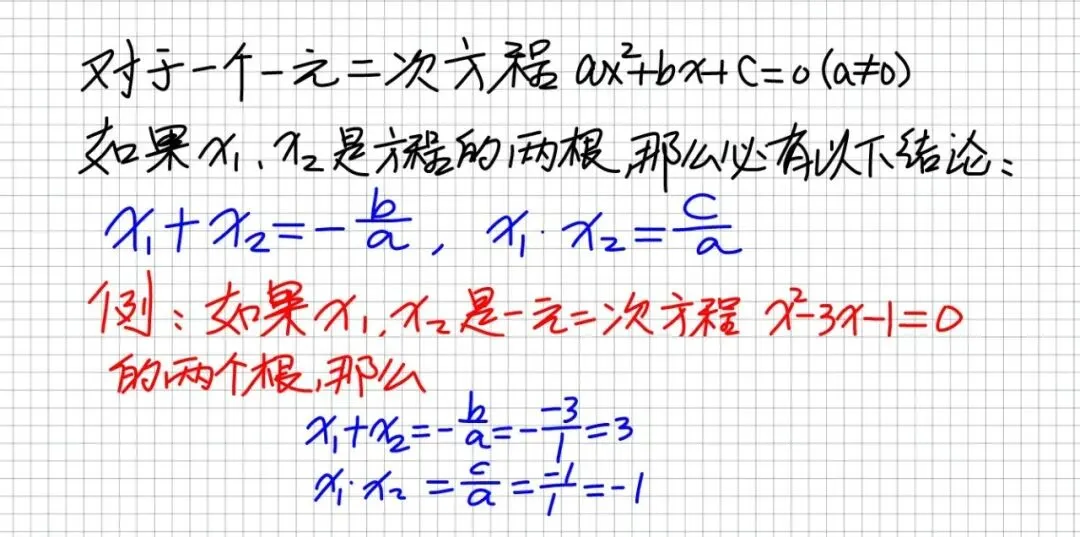 对于一个一元二次方程 ax²+bx+c=0 (a≠0)
如果 x₁、x₂ 是方程的两根,那么必有以下结论:
x₁+x₂=-b/a, x₁·x₂=c/a
例:如果 x₁、x₂ 是一元二次方程 x²-3x-1=0
的两个根,那么
x₁+x₂=-b/a=-(-3)/1=3
x₁·x₂=c/a=-1/1=-1